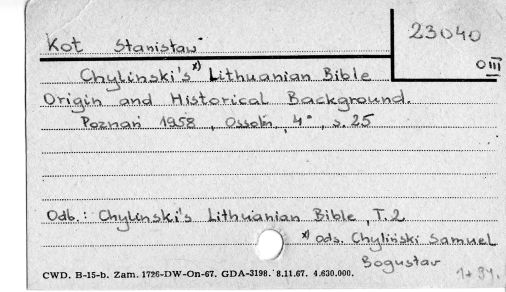 23040
Kot Stanisław
O III
Chylinski's x) Lithuanian Bible
Origin and Historical Background.
Poznań 1958, Ossolin, 4°, s. 25
Odb.: Chylinski's Lithuanian Bible, T.2
x) ods. Chyliński Samuel
Bogusław
CWD. B-15-b. Zam. 1726-DW-On-67. GDA-3198. 8.11.67. 4.630.000.